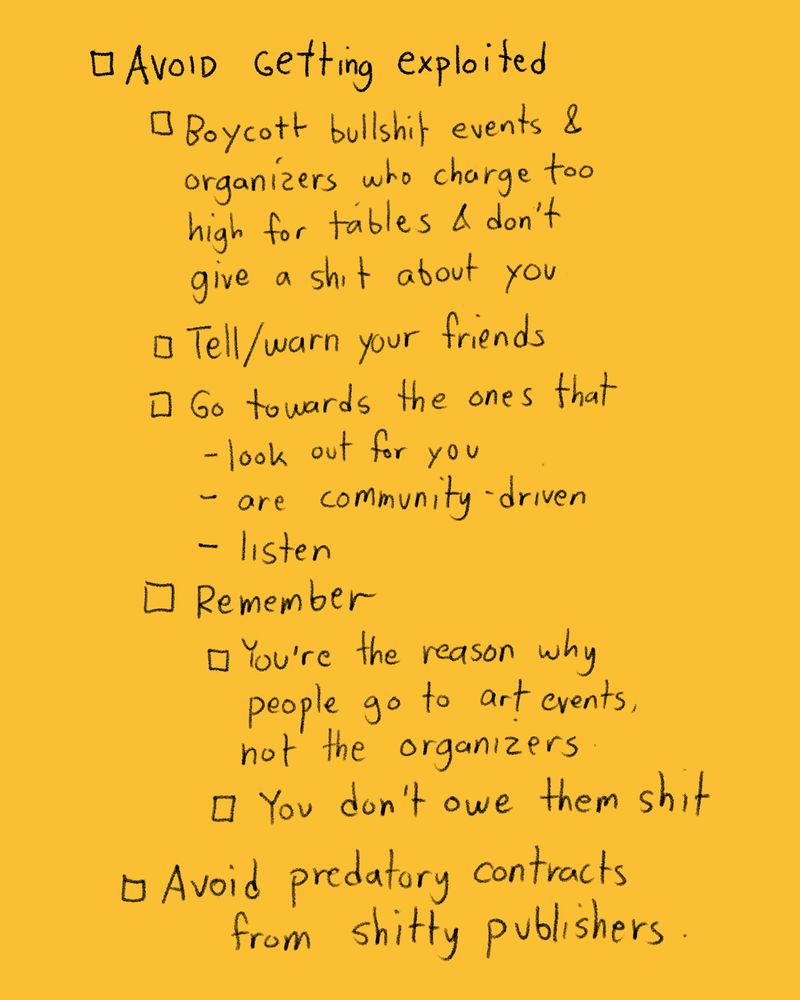 Avoid Getting exploited
Boycott bullshit events &
organizers who charge too
high for tables & don't
give a shit about you
Tell/warn your friends
Go towards the ones that
- look out for you
- are community-driven
- listen
Remember
You're the reason why
people go to art events,
not the organizers
You don't owe them shit
Avoid predatory contracts
from shitty publishers.